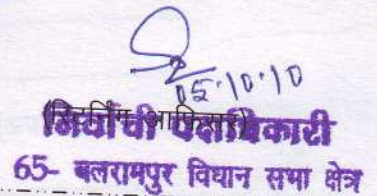 05.10.10
(रिटर्निंग आफिसर)
निर्वाची पदाधिकारी
65- बलरामपुर विधान सभा क्षेत्र